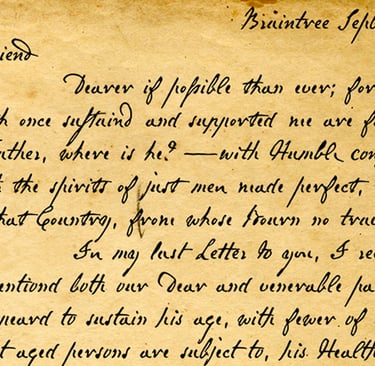 Braintree Sep
iend
Dearer if poſsible than ever; for
h once suſtaind and supported me are f
ther, where is he? — with Humble con
the spirits of just men made perfect,
hat Country, from whose Bourn no tra
In my last Letter to you, I re
entiond both our Dear and venerable pa
peard to sustain his age, with fewer of
t aged persons are subject to, his Health